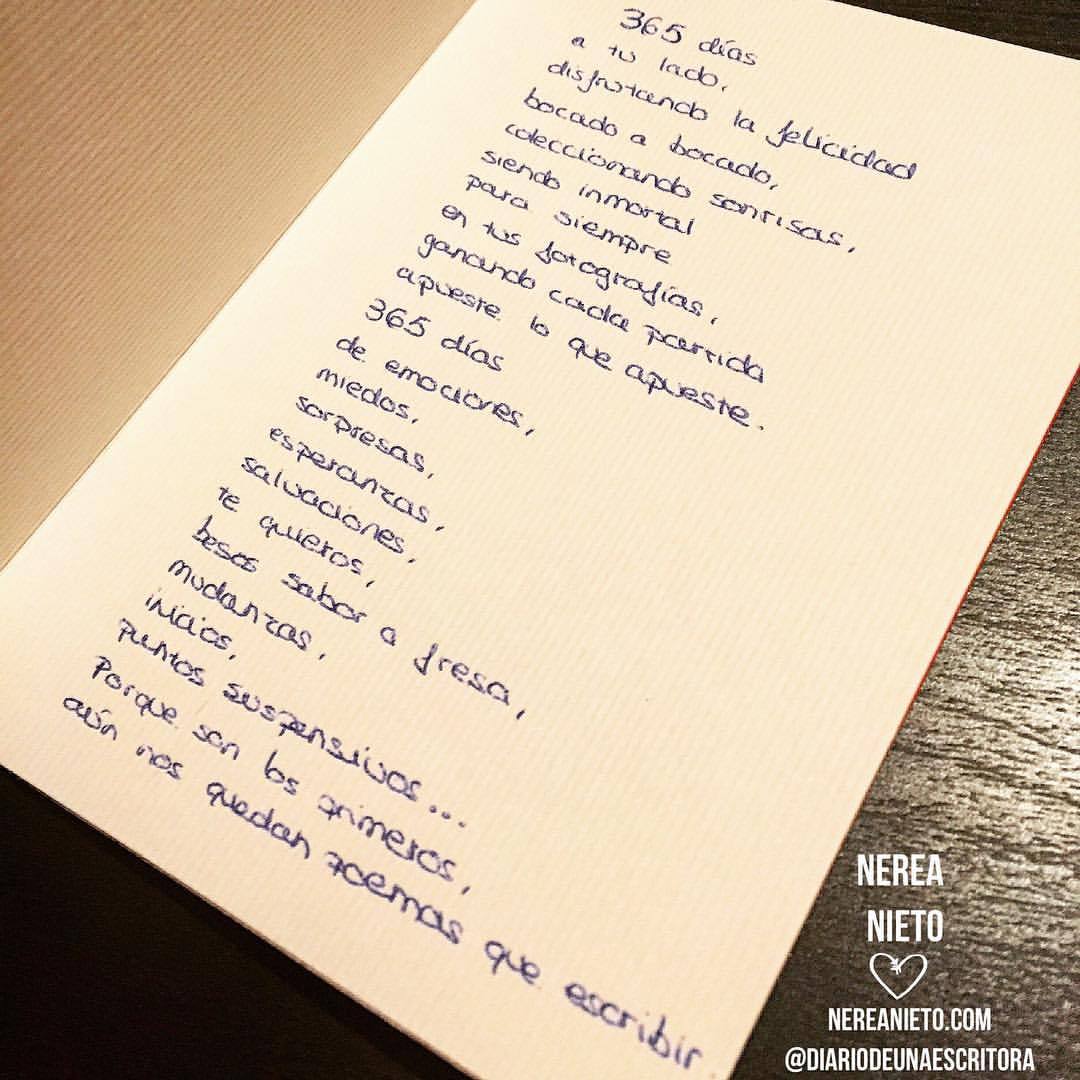 365 días
a tu lado,
disfrutando la felicidad
bocado a bocado,
coleccionando sonrisas,
siendo inmortal
para siempre
en tus fotografías,
ganando cada partida
apueste lo que apueste.
365 días
de emociones,
miedos,
sorpresas,
esperanzas,
salvaciones,
te quieros,
besos sabor a fresa,
mudanzas,
inicios,
puntos suspensivos...
Porque son los primeros,
aún nos quedan poemas que escribir.
NEREA
NIETO
NEREANIETO.COM
@DIARIODEUNAESCRITORA